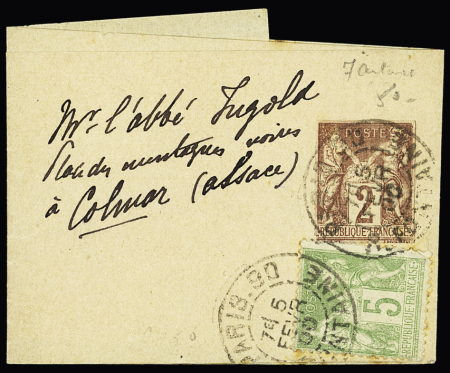 Mr. l'abbé Ingold
Place des montagnes noires
à Colmar (alsace)
POSTE
2
REPUBLIQUE FRANÇAISE
PARIS 60
7E 5
FEVR
5
REPUBLIQUE FRANÇAISE